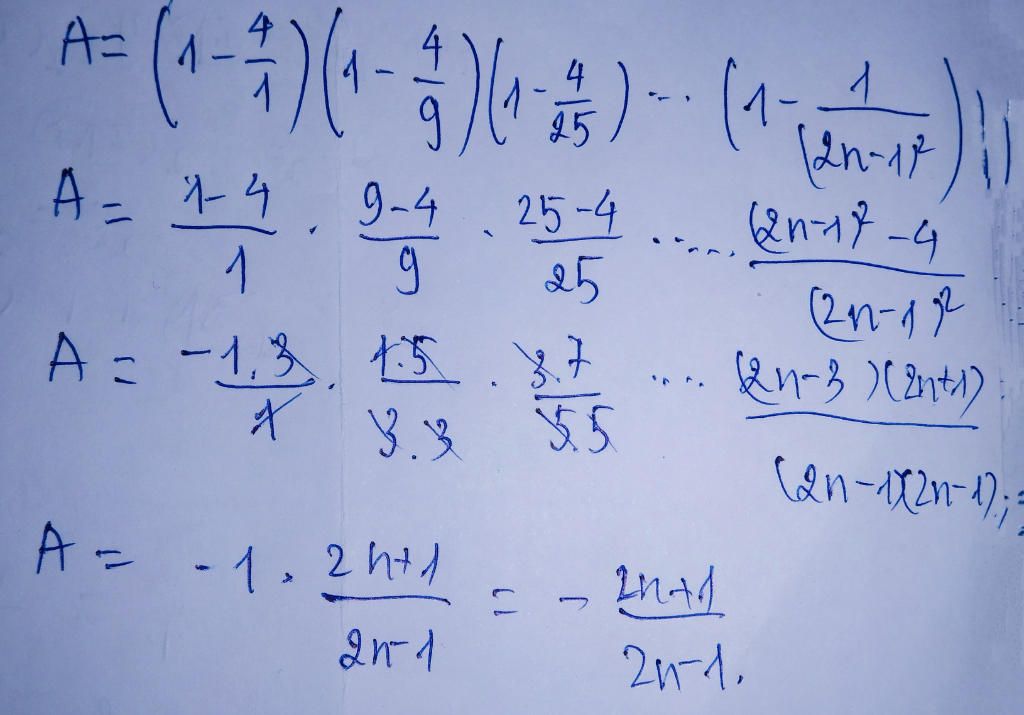 A = (1 - 4/1)(1 - 4/9)(1 - 4/25) ... (1 - 1/(2n-1)²)
A = (1-4)/1 . (9-4)/9 . (25-4)/25 ..... ((2n-1)² - 4)/(2n-1)²
A = (-1.3)/1 . (1.5)/(3.3) . (3.7)/(5.5) .... (2n-3)(2n+1)/(2n-1)(2n-1);
A = -1 . (2n+1)/(2n-1) = - (2n+1)/(2n-1).